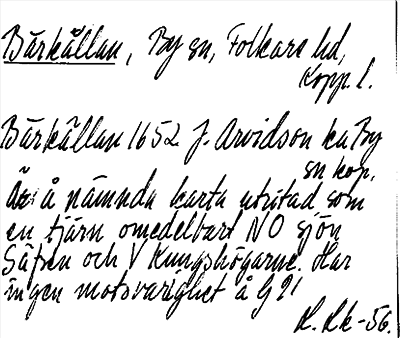 Bärkällan, By sn, Folkare hd,
Kopp. l.
Bärkällan 1652 J. Arvidson ka By
sn kop.
Är å nämnda karta utritad som
en tjärn omedelbart NO sjön
Säfsen och V Kungshögarne. Har
ingen motsvarighet å G 21
H. Lk-56.